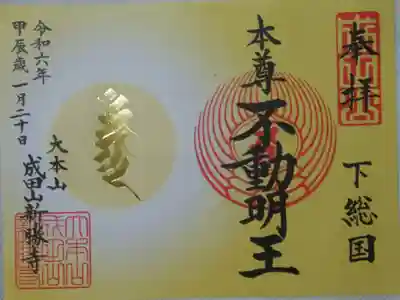 奉拝
下総国
本尊不動明王
大本山
成田山新勝寺
令和六年
甲辰歳一月二十日